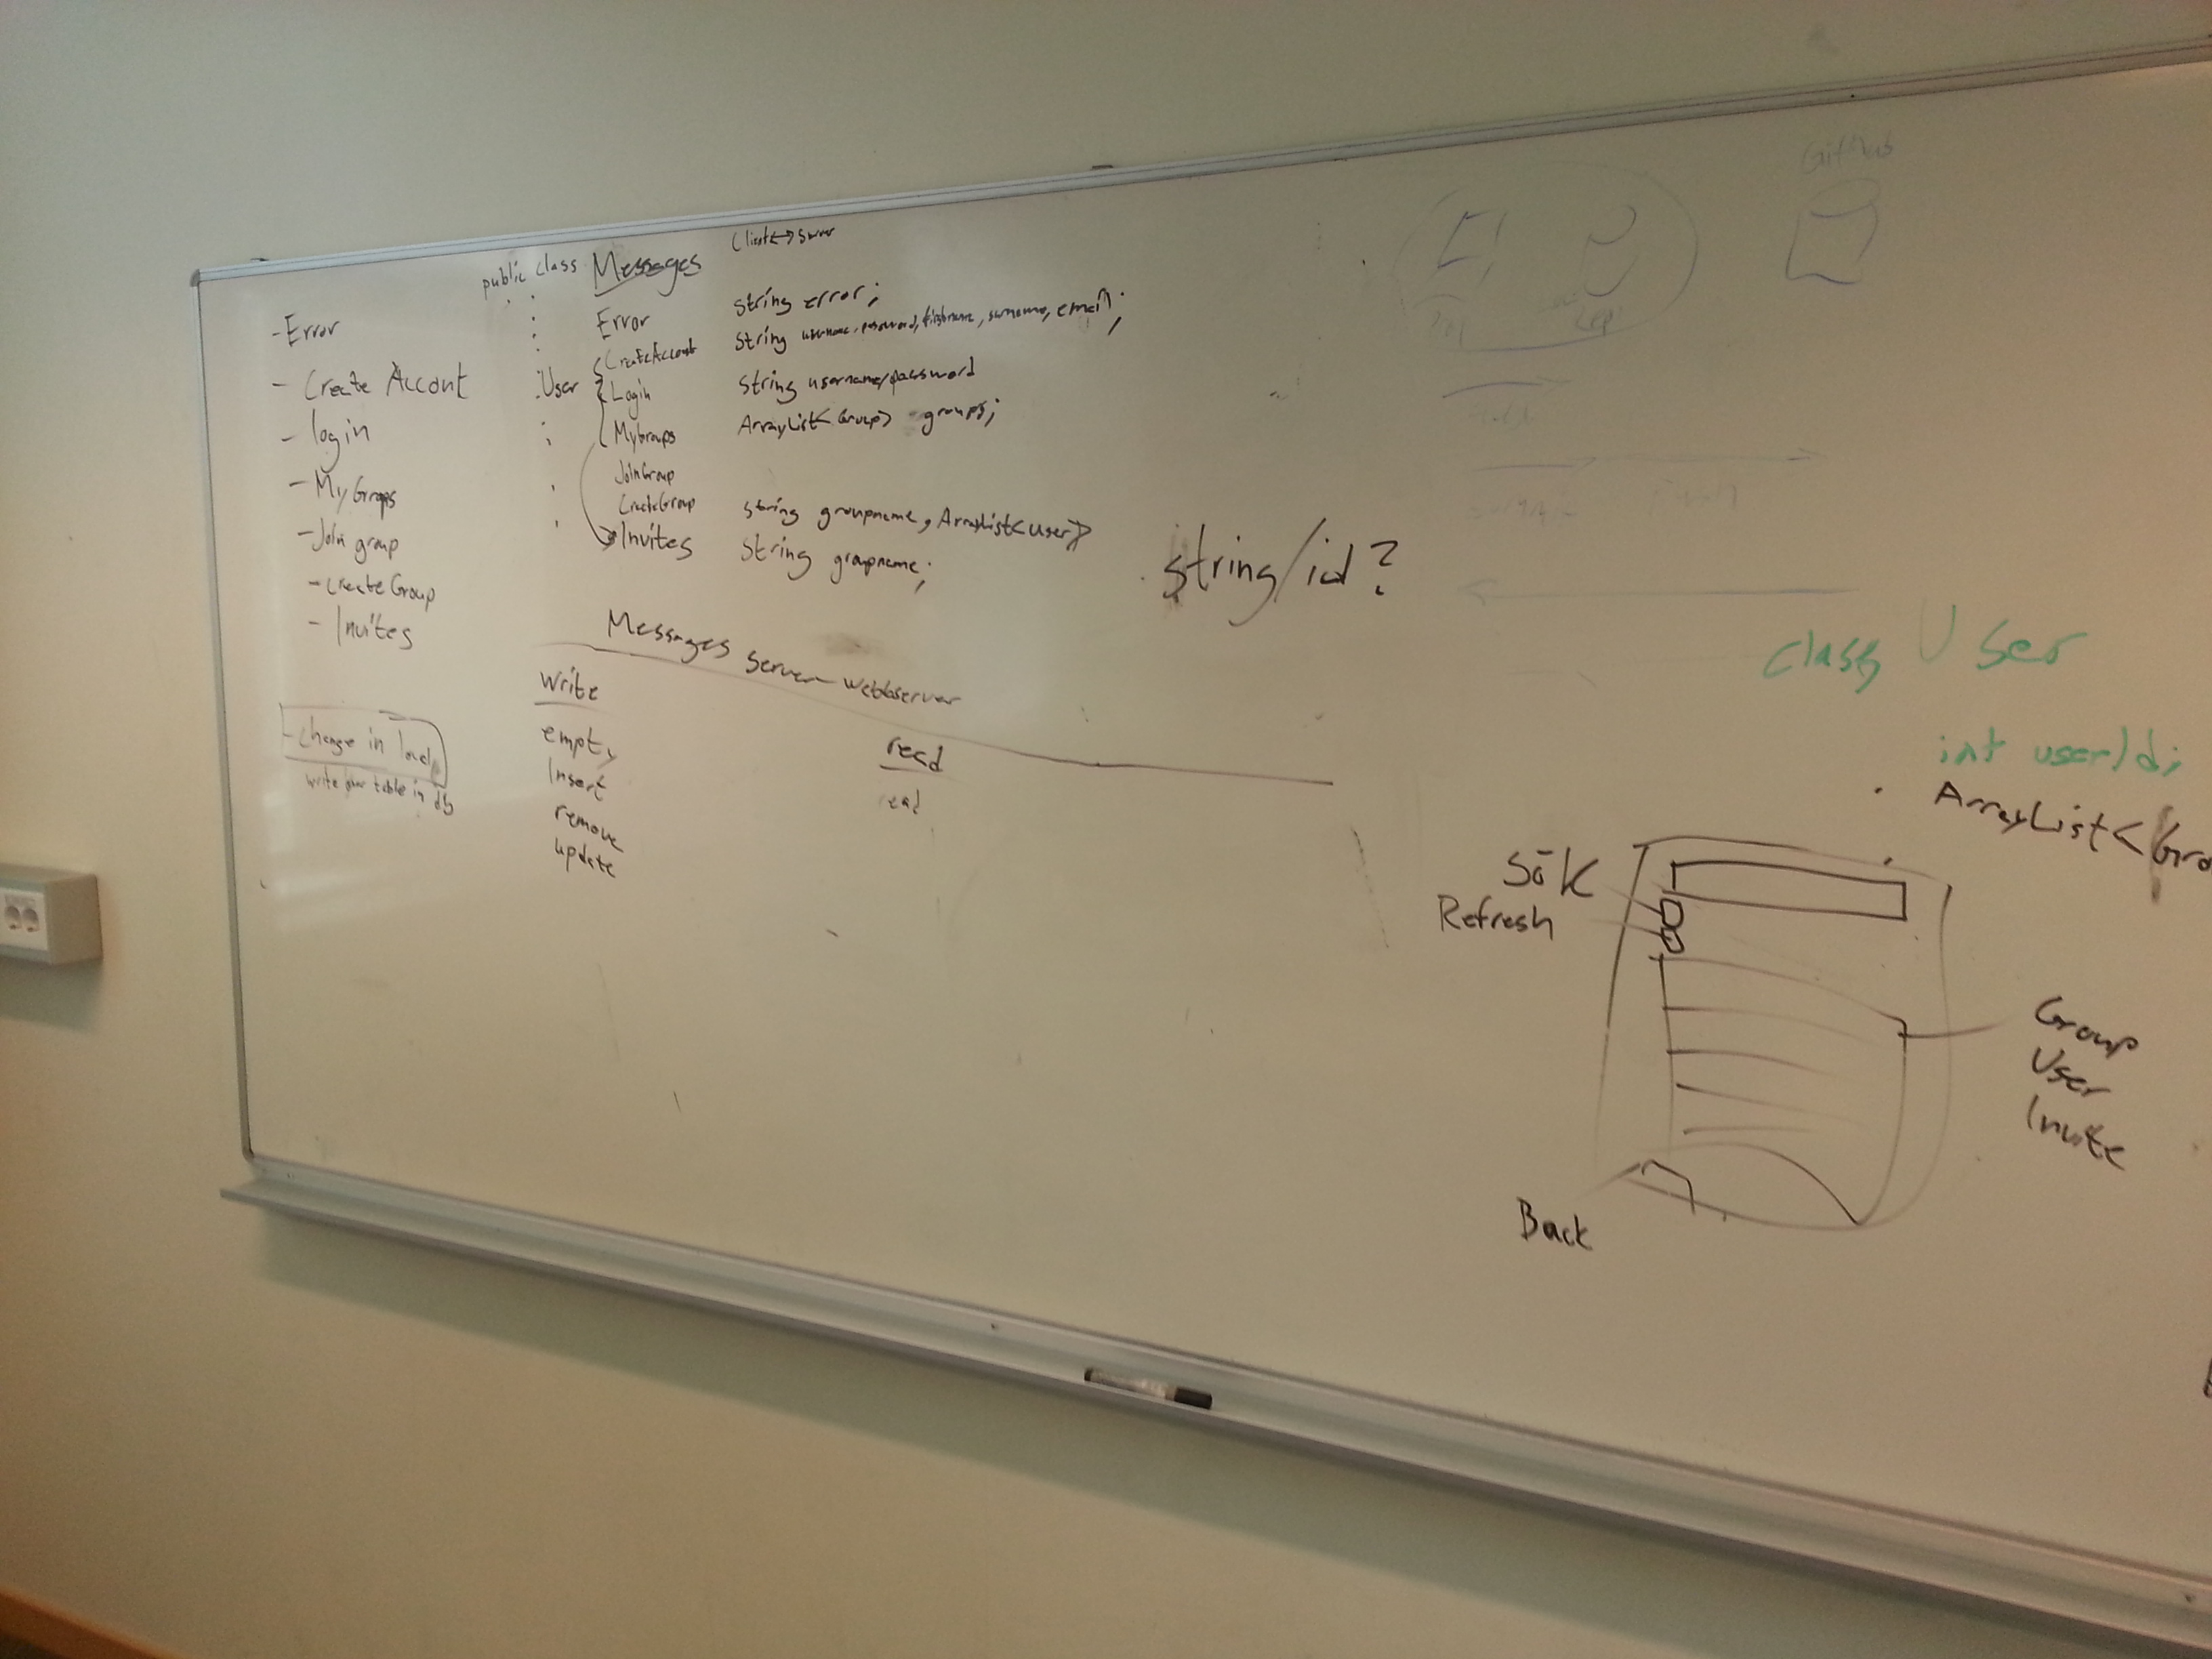 GitHub
Client<->Server
public class Messages
- Error
- Create Accont
- login
- MyGroups
- Join group
- createGroup
- Invites
- change in local
write over table in db
User
Error String error;
CreateAccount String username, password, firstname, surname, email;
Login String username/password
MyGroups ArrayList<Group> groups;
JoinGroup
CreateGroup String groupname, ArrayList<User>
Invites String groupname;
string/id?
Messages Server-Webbserver
Write
empty
Insert
remove
update
read
read
class User
int userId;
ArrayList<Gro
Sök
Refresh
Group
User
Invite
Back